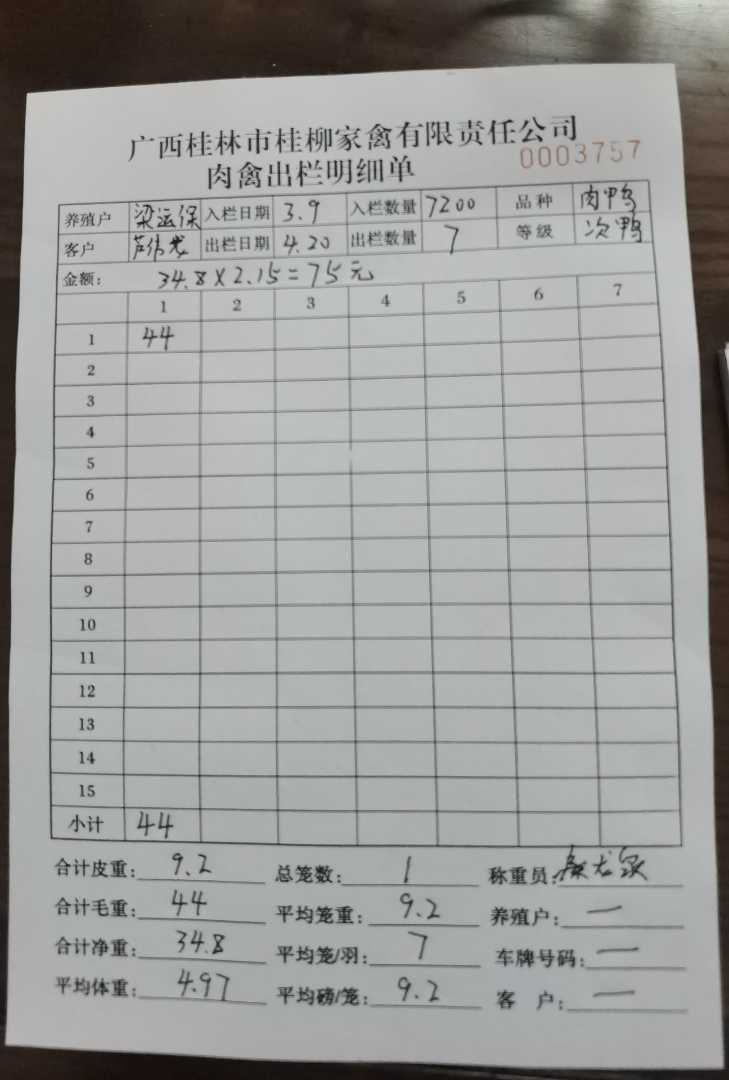 广西桂林市桂柳家禽有限责任公司
肉禽出栏明细单 0003757
养殖户 梁运保 入栏日期 3.9 入栏数量 7200 品种 肉鸭
客户 出栏日期 4.20 出栏数量 7 等级 次鸭
金额: 34.8×2.15=75元
1 2 3 4 5 6 7
1 44
2
3
4
5
6
7
8
9
10
11
12
13
14
15
小计 44
合计皮重: 9.2 总笼数: 1 称重员:
合计毛重: 44 平均笼重: 9.2 养殖户: 一
合计净重: 34.8 平均笼/羽: 7 车牌号码: 一
平均体重: 4.97 平均磅/笼: 9.2 客 户: 一